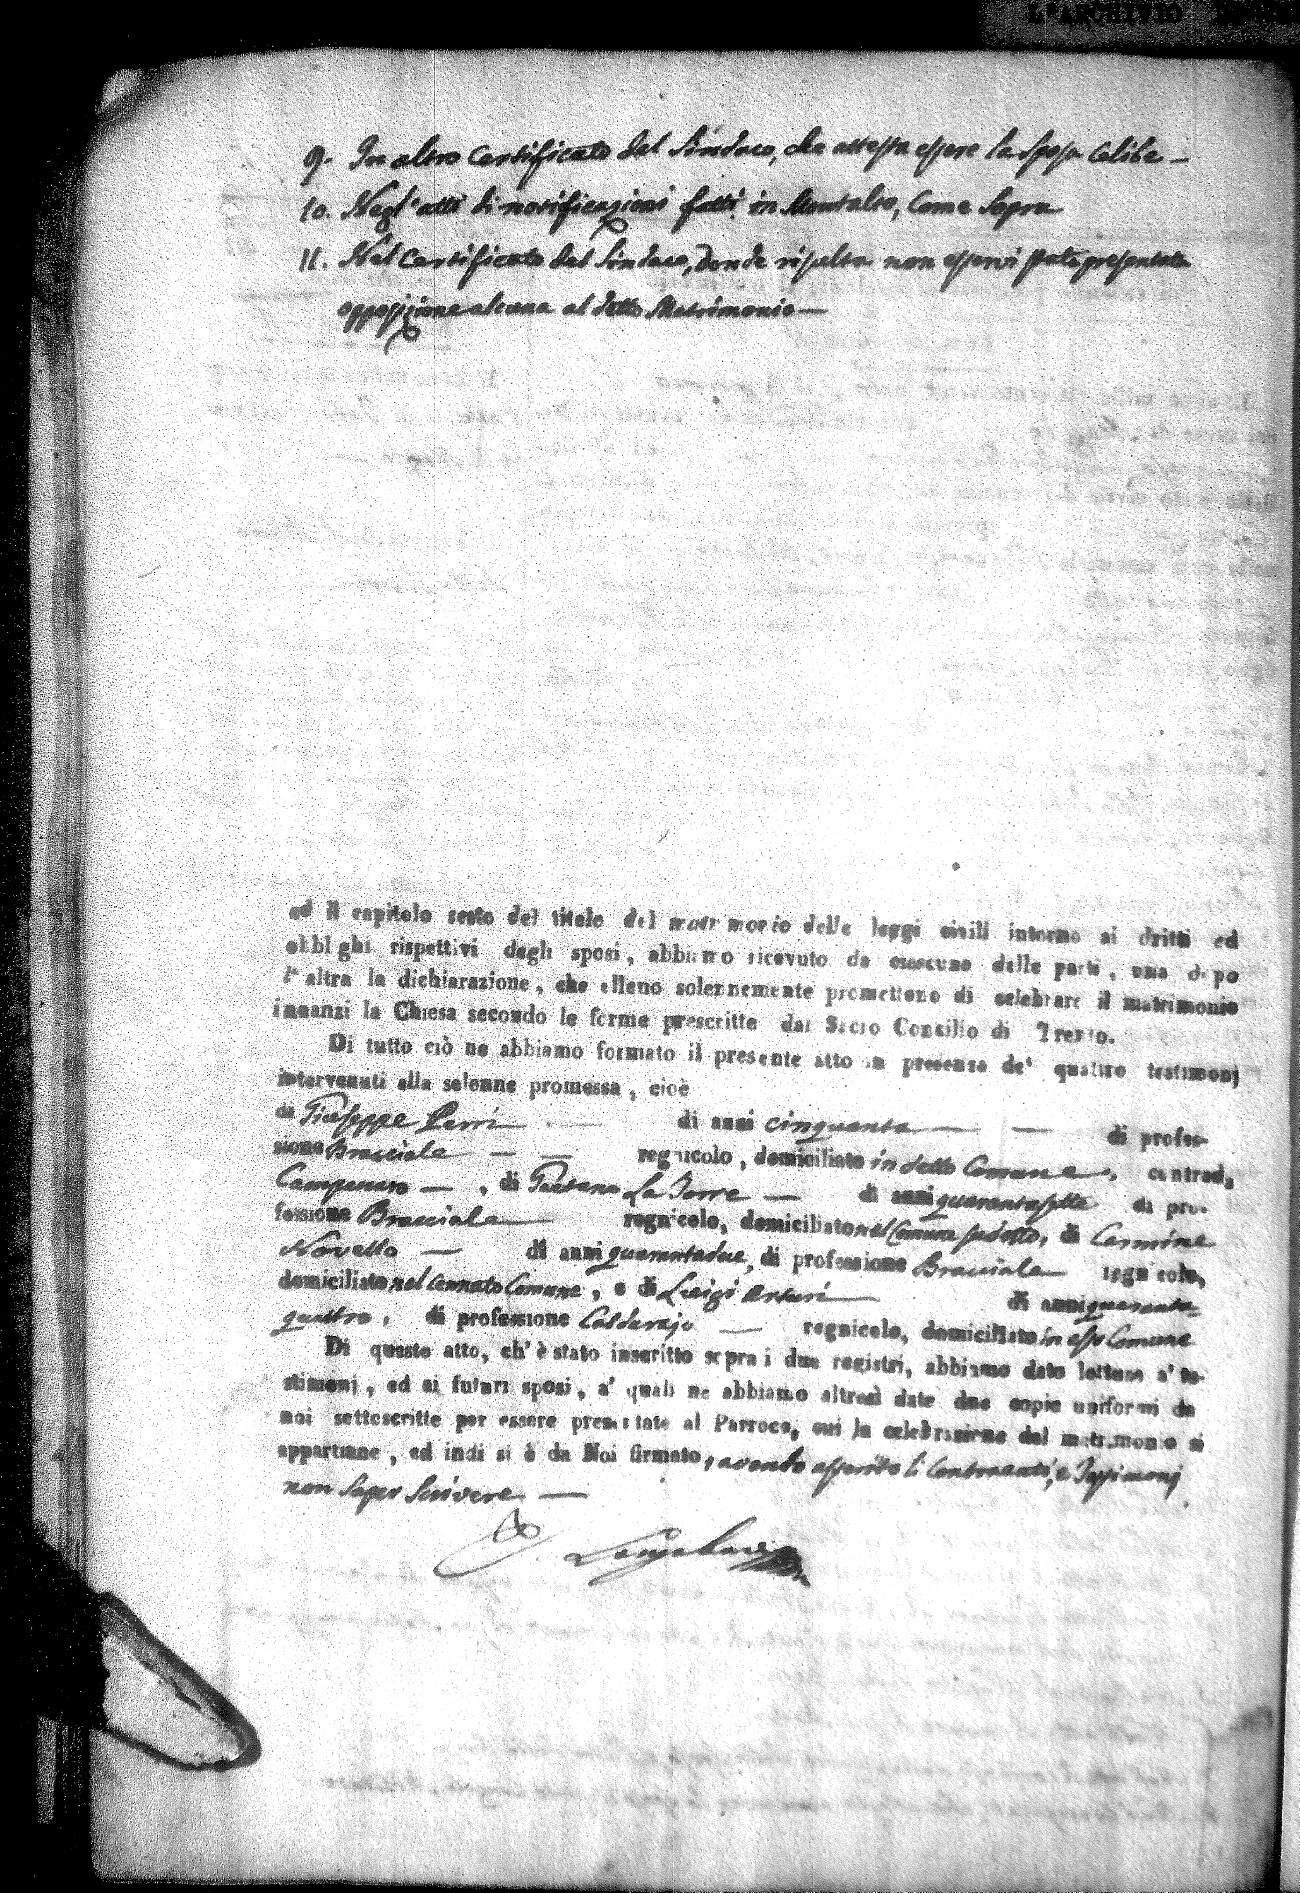 L'ARCHIVIO
9. In altro Certificato del Sindaco, che attesta essere la sposa Celibe —
10. Negl'atti di notificazioni fatti in Montalto, Come Sopra
11. Nel Certificato del Sindaco, donde risulta non esservi stata presentata
opposizione alcuna al detto Matrimonio —
ed il capitolo sesto del titolo del matrimonio delle leggi civili intorno ai dritti ed
obblighi rispettivi degli sposi, abbiamo ricevuto da ciascuna delle parti, una dopo
l'altra la dichiarazione, che elleno solennemente promettono di celebrare il matrimonio
innanzi la Chiesa secondo le forme prescritte dal Sacro Concilio di Trento.
Di tutto ciò ne abbiamo formato il presente atto in presenza de' quattro testimonj
intervenuti alla solenne promessa, cioè
di Giuseppe Perri — di anni cinquanta — — di profes-
sione Bracciale — — regnicolo, domiciliato in detto Comune, contrada
Campanaro —, di Gaetano La Torre — di anni quarantasette di pro-
fessione Bracciale — regnicolo, domiciliato nel Comune sudetto, di Carmine
Novello — di anni quarantadue, di professione Bracciale — regnicolo,
domiciliato nel cennato Comune, e di Luigi Arturi — di anni quaranta-
quattro, di professione Calderajo — regnicolo, domiciliato in esso Comune
Di questo atto, ch'è stato inscritto sopra i due registri, abbiamo dato lettura a' te-
stimonj, ed ai futuri sposi, a' quali ne abbiamo altresì date due copie uniformi da
noi sottoscritte per essere presentate al Parroco, cui la celebrazione del matrimonio si
appartiane, ed indi si è da Noi firmato, avendo asserito li Contraenti, e Testimonj
non saper scrivere —